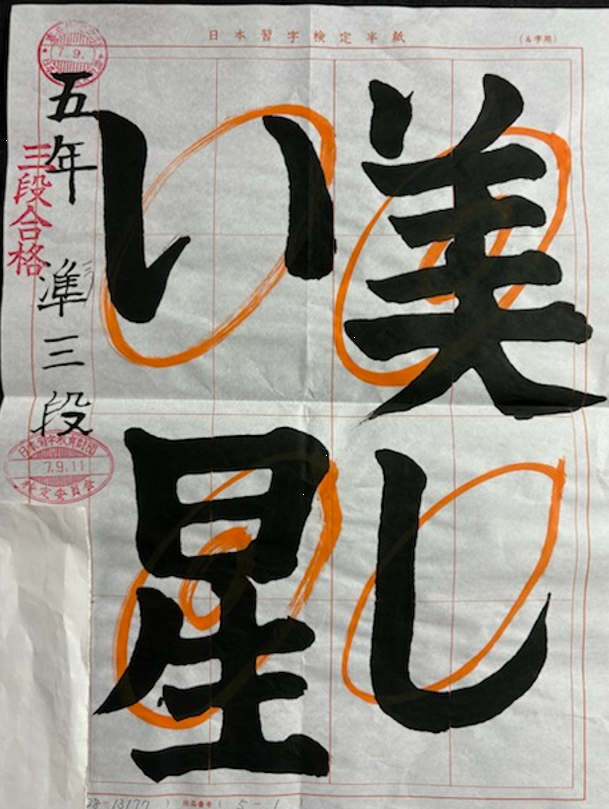 日本習字検定半紙
(4字用)
美し
い星
五年 準三段
三段合格
7.9.
日本習字教育財団
7.9.11
検定委員会
出品番号 ( 5-1 )